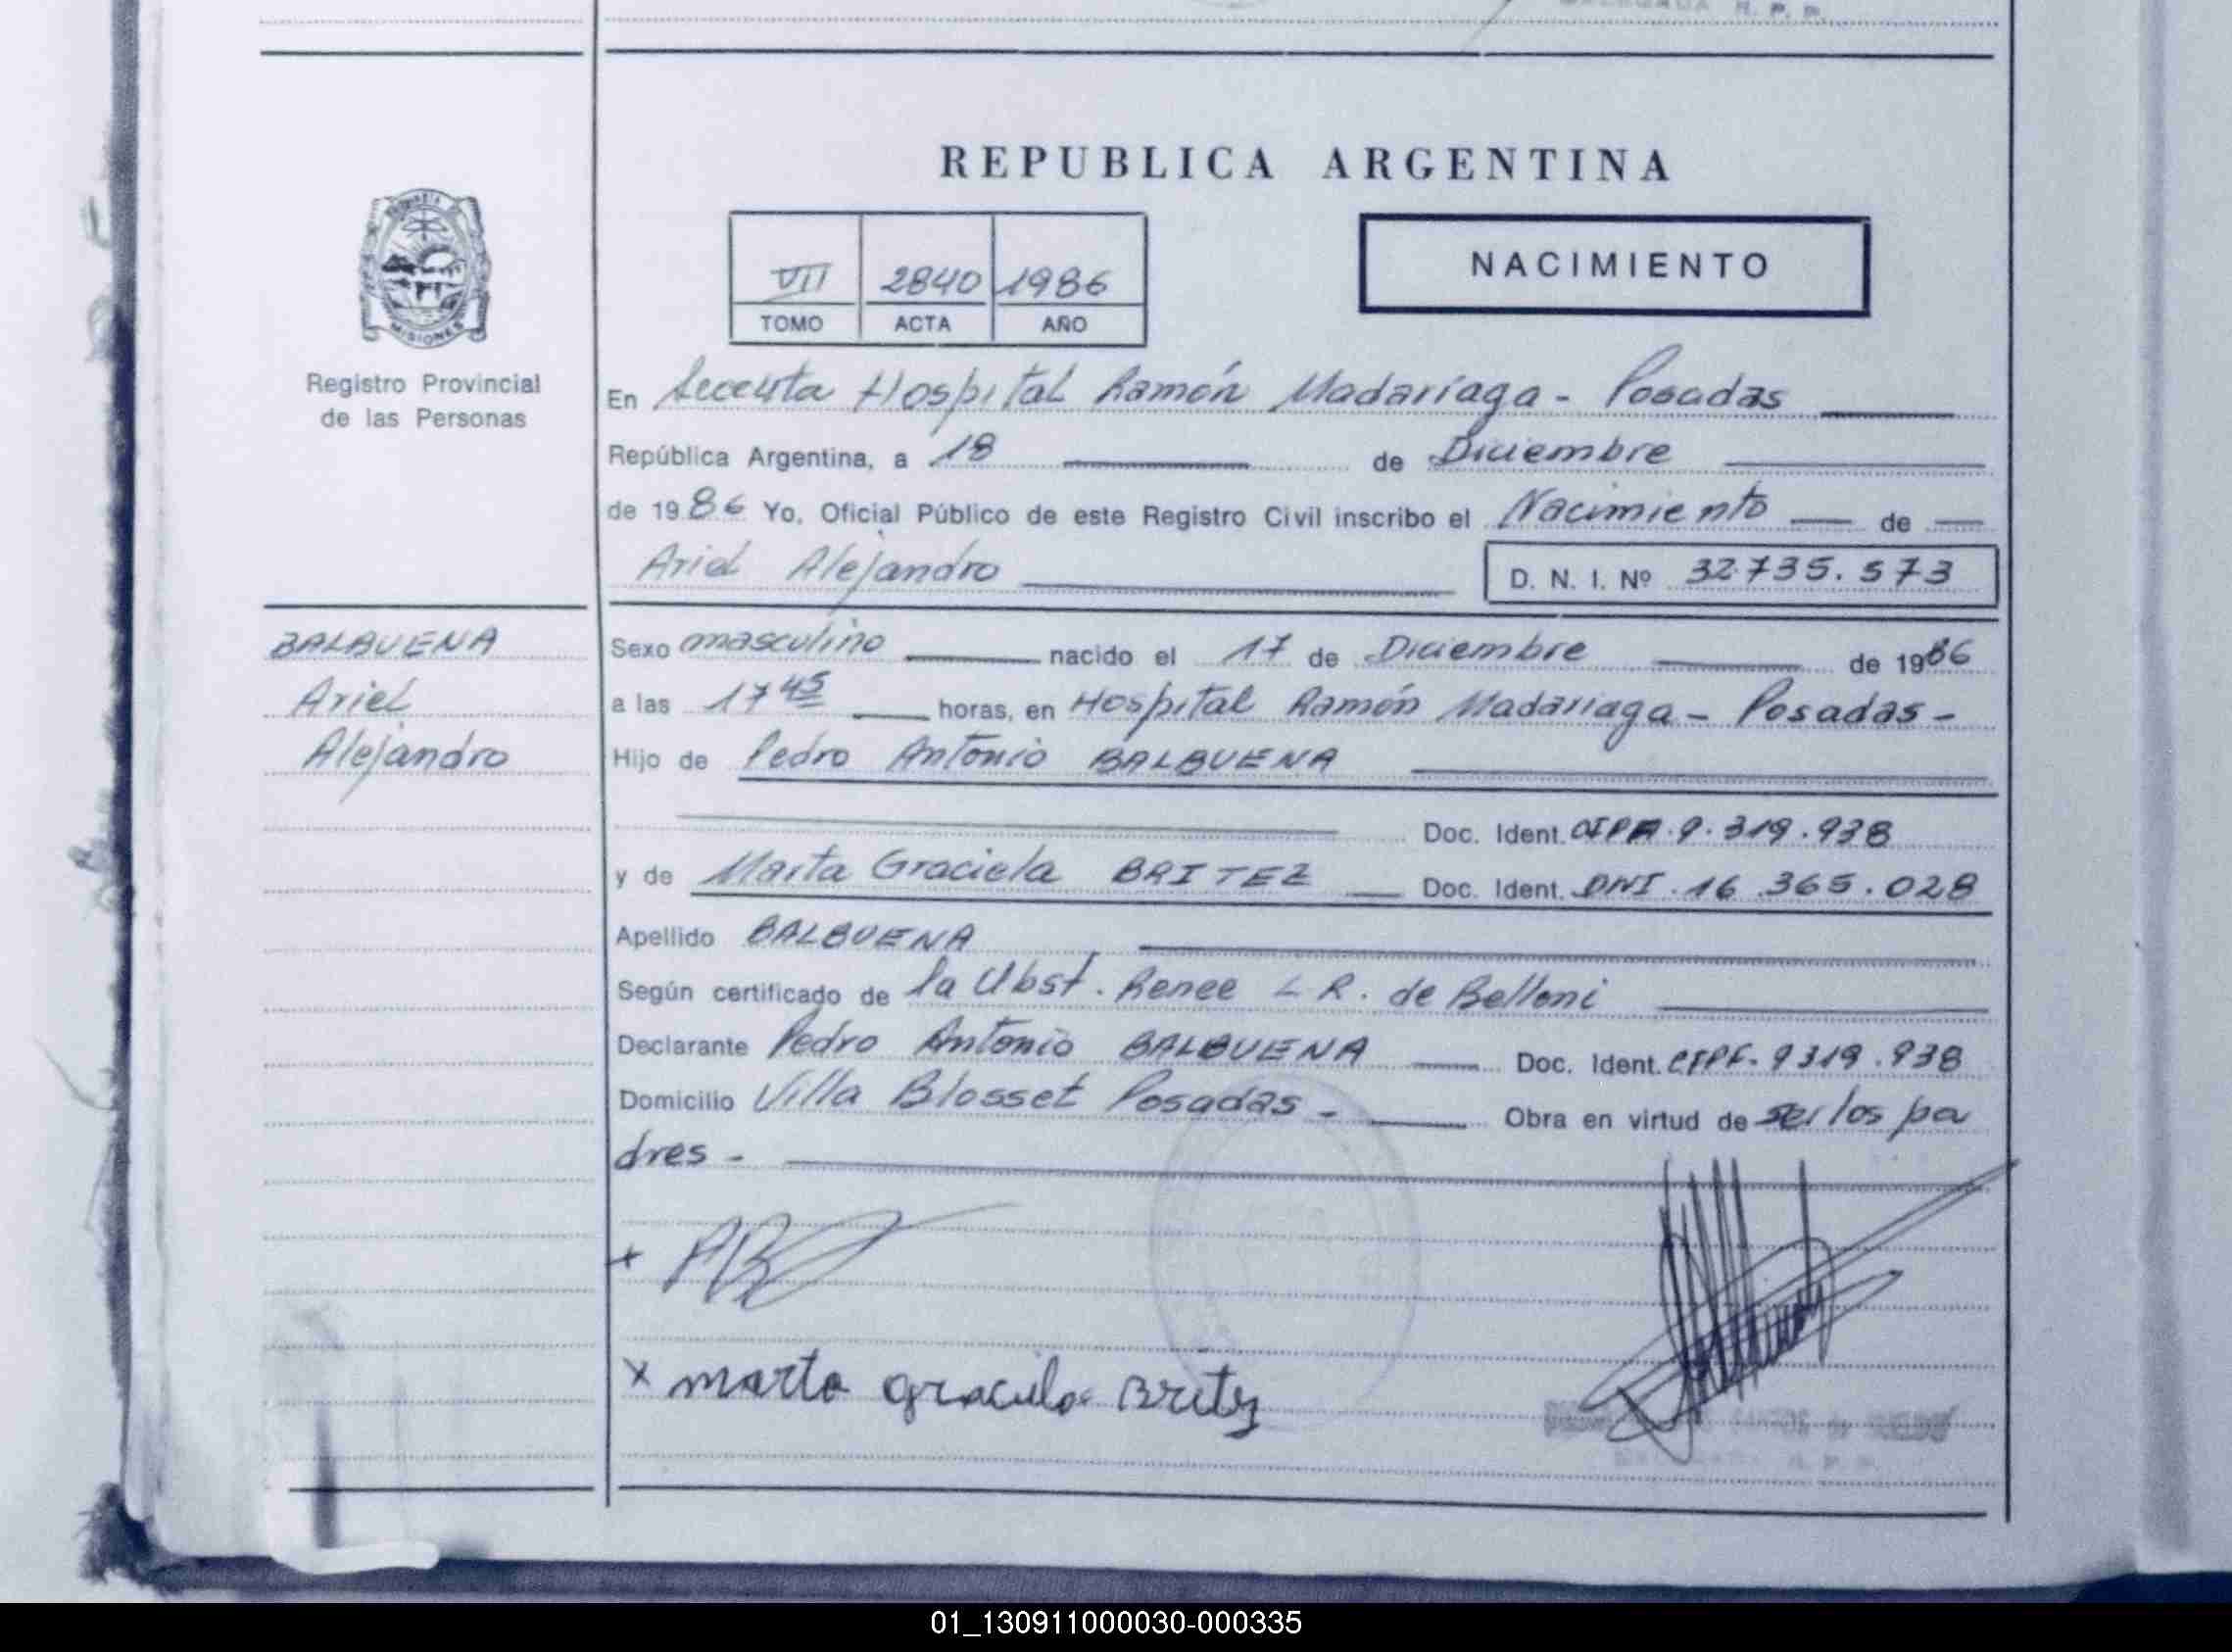 REPUBLICA ARGENTINA
VII 2840 1986
TOMO ACTA AÑO
NACIMIENTO
MISIONES
Registro Provincial
de las Personas
En Hospital Ramón Madariaga - Posadas
República Argentina, a 18 de Diciembre
de 1986 Yo, Oficial Público de este Registro Civil inscribo el Nacimiento de
Ariel Alejandro D. N. I. Nº 32.735.573
BALBUENA
Ariel
Alejandro
Sexo masculino nacido el 17 de Diciembre de 1986
a las 17 45 horas, en Hospital Ramón Madariaga - Posadas -
Hijo de Pedro Antonio BALBUENA
Doc. Ident. 9.319.938
y de Marta Graciela BRITEZ Doc. Ident. DNI. 16.365.028
Apellido BALBUENA
Según certificado de la Obst. Renee L R. de Belloni
Declarante Pedro Antonio BALBUENA Doc. Ident. 9319.938
Domicilio Villa Blosset Posadas - Obra en virtud de ser los pa
dres -
x marta graciela Britez
01_130911000030-000335